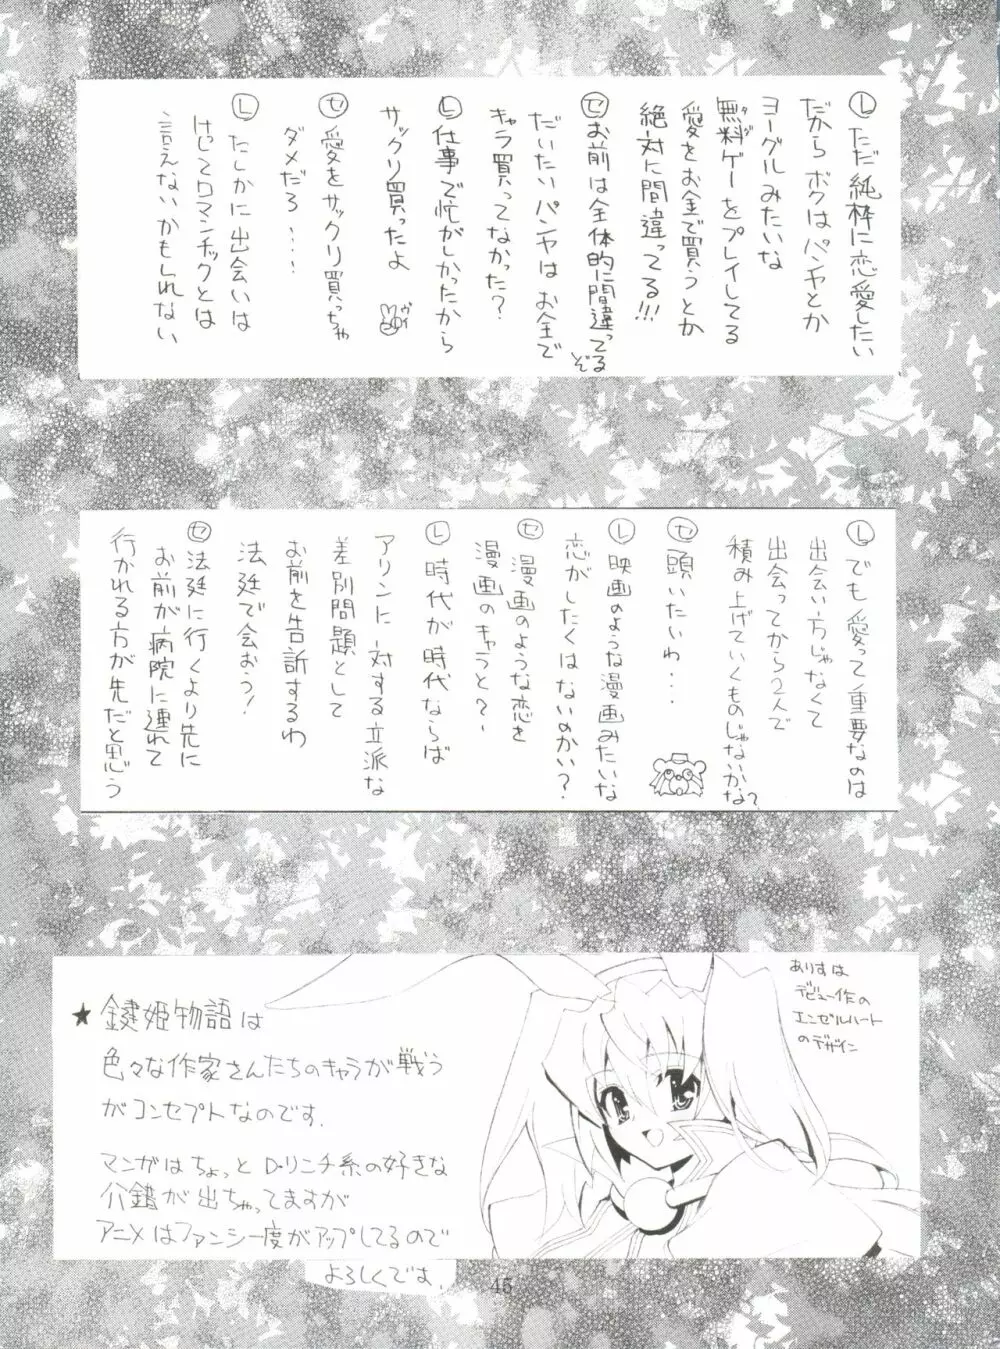 Ⓛただ純粋に恋愛したい
だからボクはパンヤとか
ヨーグルみたいな
無料ゲーをプレイしてる
タダ
愛をお金で買うとか
絶対に間違ってる!!!
㋝お前は全体的に間違ってるぞ
だいたいパンヤはお金で
キャラ買ってなかった?
Ⓛ仕事で忙がしかったから
サックリ買ったよ
ヴイ
㋝愛をサックリ買っちゃ
ダメだろ・・・・
Ⓛたしかに出会いは
けしてロマンチックとは
言えないかもしれない
Ⓛでも愛って重要なのは
出会い方じゃなくて
出会ってから2人で
積み上げていくものじゃないかな?
㋝頭いたいわ・・・
Ⓛ映画のような漫画みたいな
恋がしたくはないのかい?
㋝漫画のような恋を
漫画のキャラと?〜
Ⓛ時代が時代ならば
アリンに対する立派な
差別問題として
お前を告訴するわ
法廷で会おう!
㋝法廷に行くより先に
お前が病院に連れて
行かれる方が先だと思う
★鍵姫物語は
色々な作家さんたちのキャラが戦う
がコンセプトなのです.
マンガはちょっとD・リニチ系の好きな
介錯が出ちゃってますが
アニメはファンシー度がアップしてるので
よろしくです.
ありすは
デビュー作の
エンゼルハート
のデザイン
45